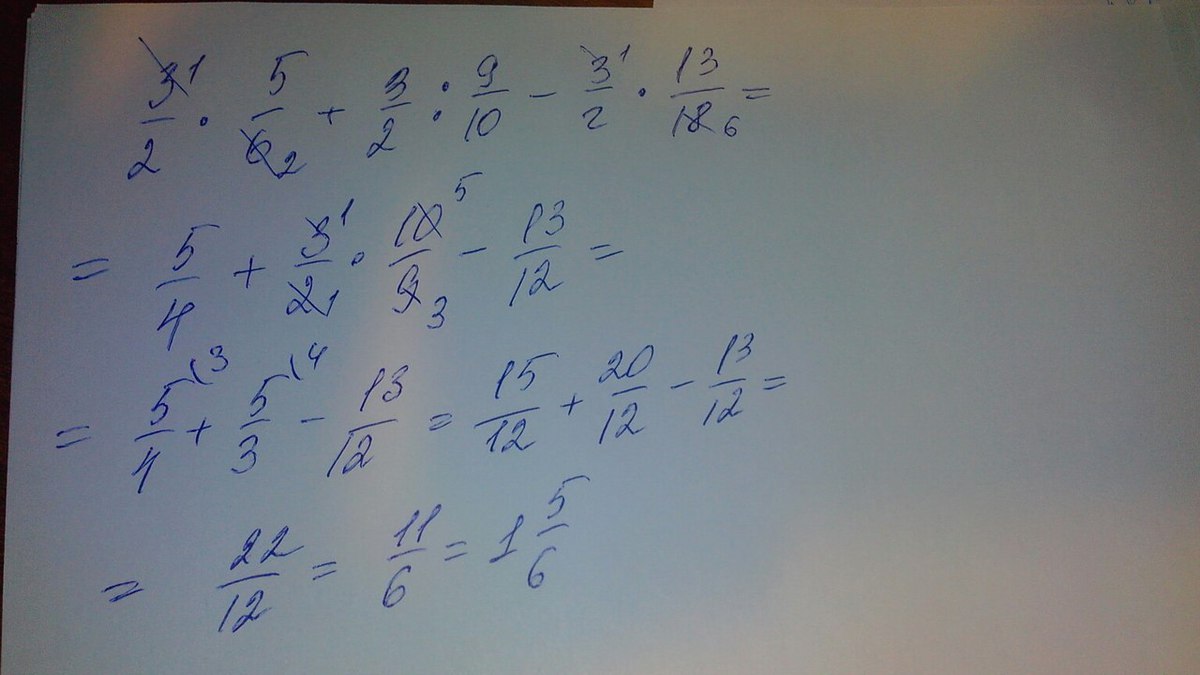 3̶¹/2 · 5/6̶₂ + 3/2 : 9/10 - 3̶¹/2 · 13/1̶8̶₆ =
= 5/4 + 3̶¹/2̶₁ · 1̶0̶⁵/9̶₃ - 13/12 =
= 5/4⁽³ + 5/3⁽⁴ - 13/12 = 15/12 + 20/12 - 13/12 =
= 22/12 = 11/6 = 1 5/6